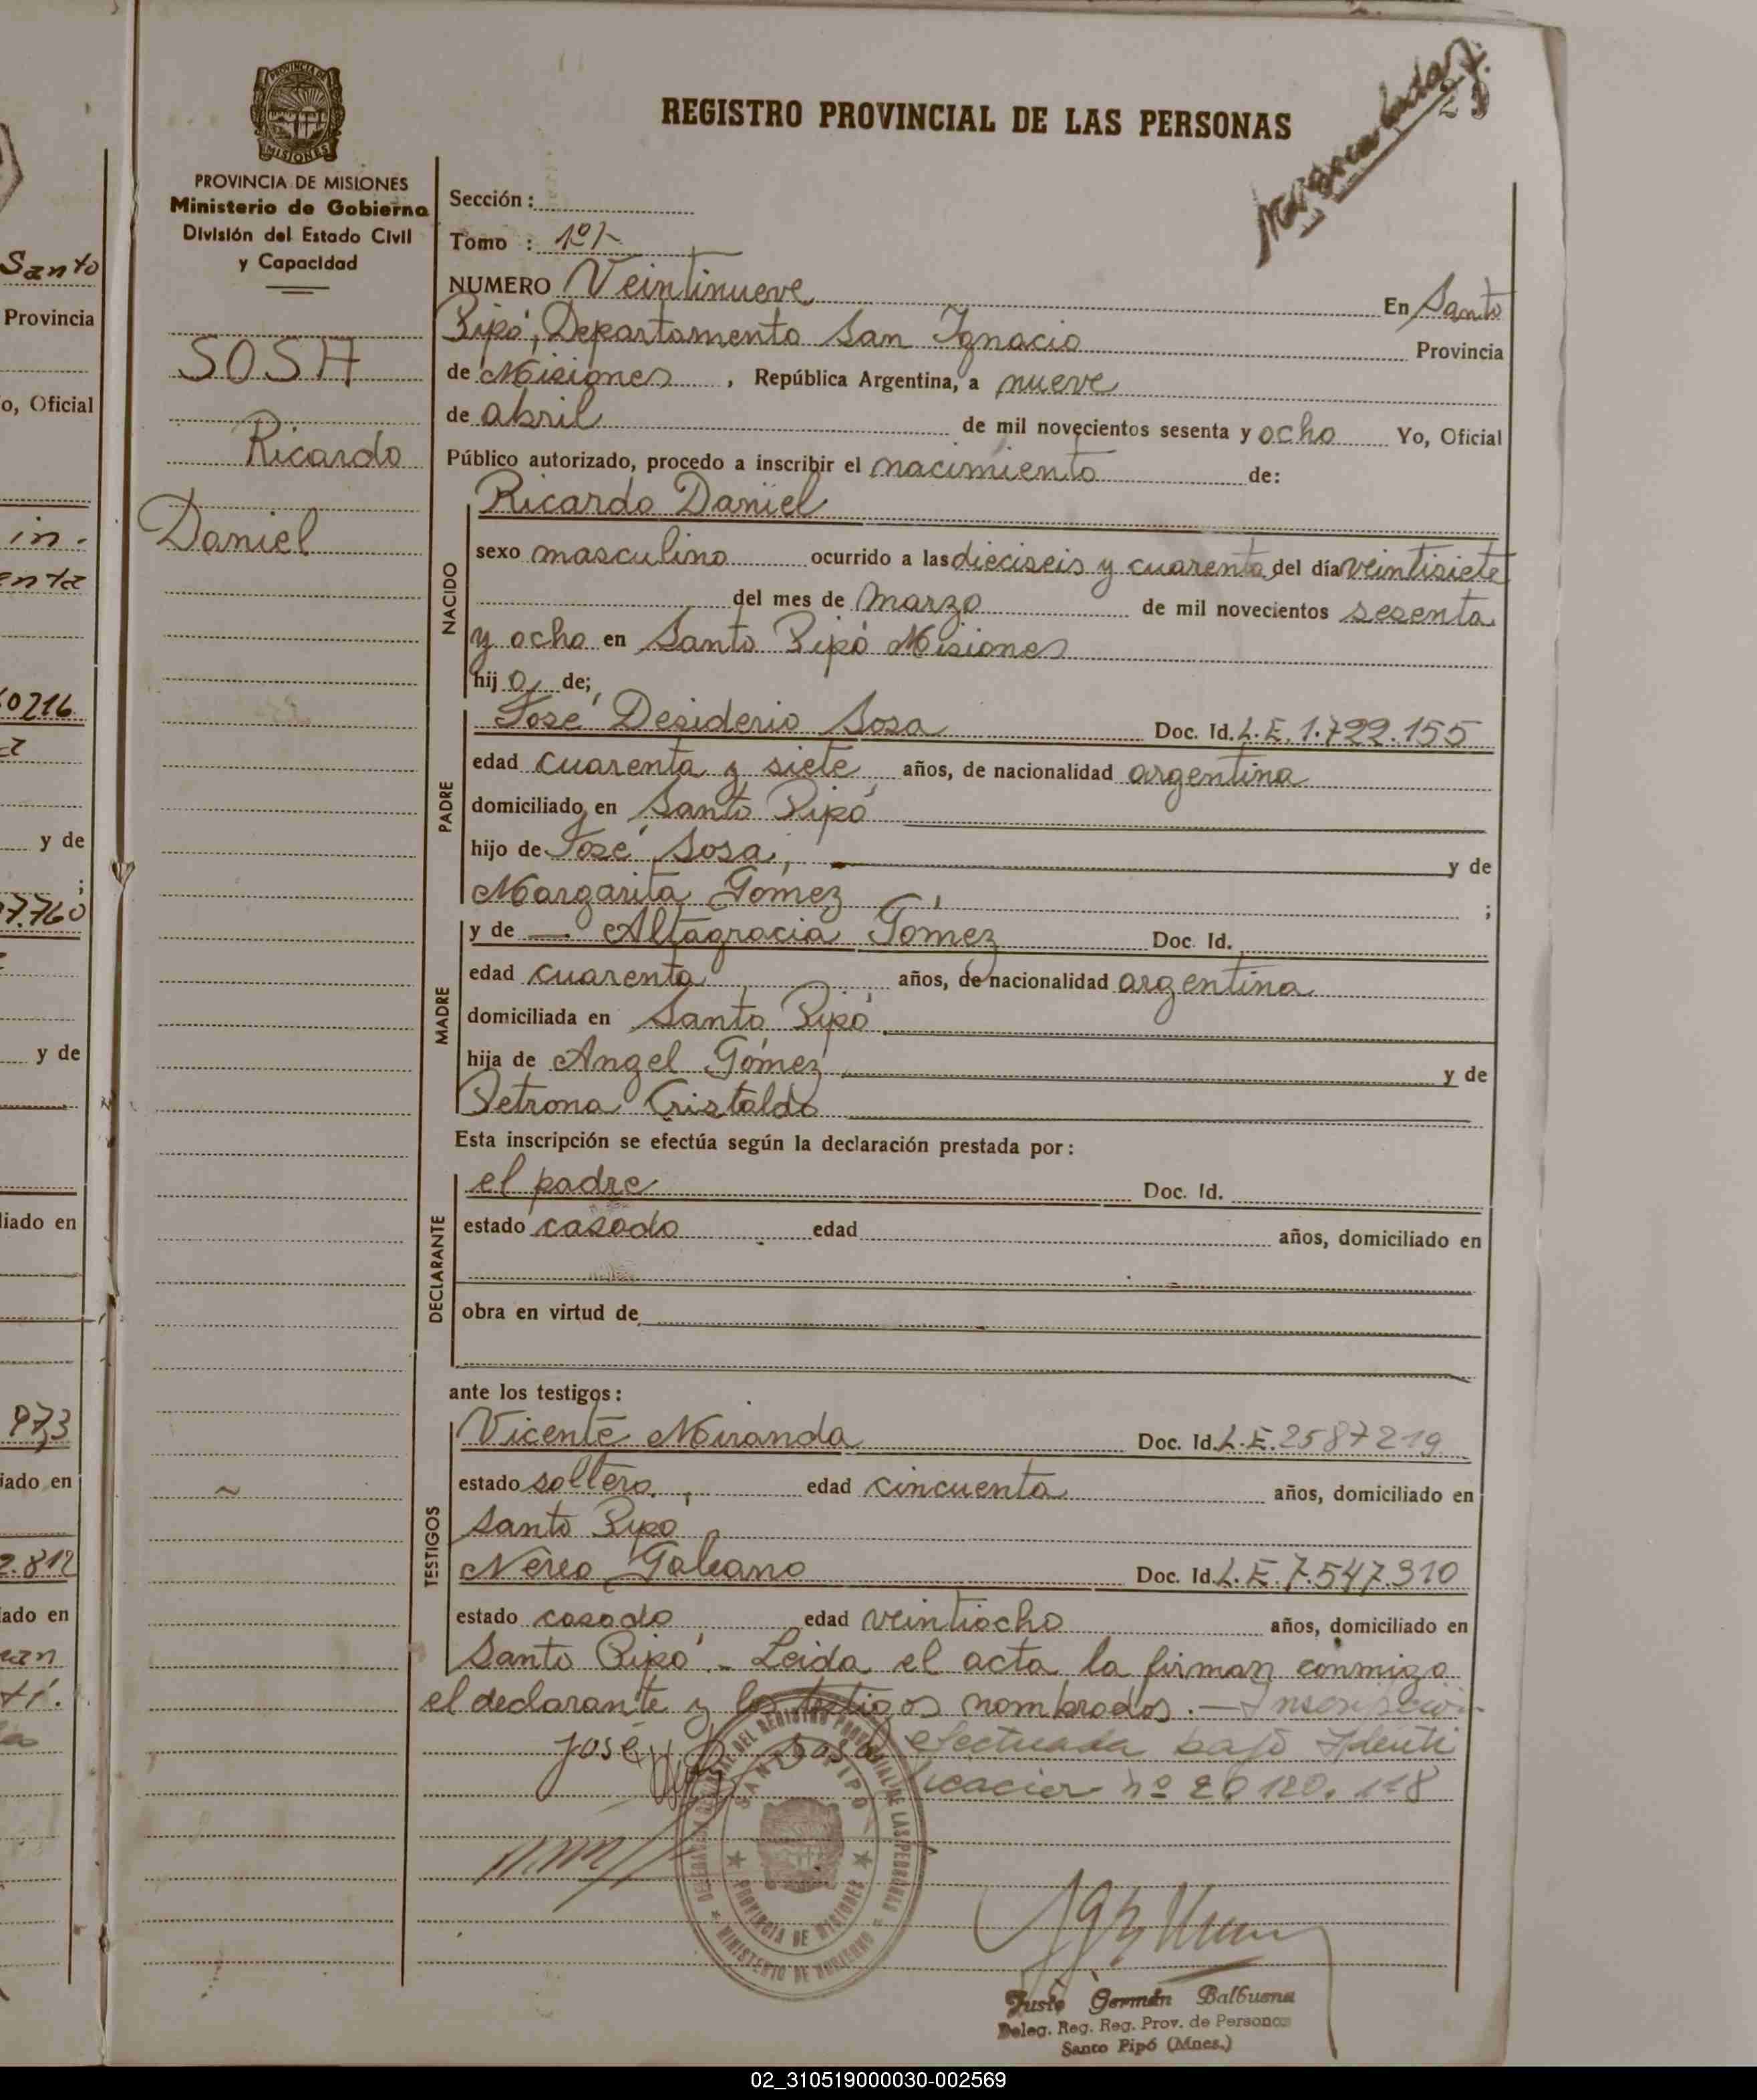 REGISTRO PROVINCIAL DE LAS PERSONAS
29
PROVINCIA DE MISIONES
PROVINCIA DE MISIONES
Ministerio de Gobierno
División del Estado Civil
y Capacidad
SOSA
Ricardo
Daniel
Sección:
Tomo : 1º
NUMERO Veintinueve En Santo
Pipó, Departamento San Ignacio Provincia
de Misiones, República Argentina, a nueve
de abril de mil novecientos sesenta y ocho Yo, Oficial
Público autorizado, procedo a inscribir el nacimiento de:
Ricardo Daniel
NACIDO
sexo masculino ocurrido a las dieciseis y cuarenta del día veintisiete
del mes de marzo de mil novecientos sesenta
y ocho en Santo Pipó Misiones
hijo de;
PADRE
José Desiderio Sosa Doc. Id. L.E. 1.722.155
edad cuarenta y siete años, de nacionalidad argentina
domiciliado en Santo Pipó
hijo de José Sosa, y de
Margarita Gómez ;
MADRE
y de — Altagracia Gomez Doc. Id.
edad cuarenta años, de nacionalidad argentina
domiciliada en Santo Pipó
hija de Angel Gómez y de
Petrona Cristaldo
Esta inscripción se efectúa según la declaración prestada por:
DECLARANTE
el padre Doc. Id.
estado casado edad años, domiciliado en
obra en virtud de
ante los testigos:
TESTIGOS
Vicente Miranda Doc. Id. L.E. 2587219
estado soltero, edad cincuenta años, domiciliado en
Santo Pipo
Nereo Galeano Doc. Id. L.E. 7.547.310
estado casado edad veintiocho años, domiciliado en
Santo Pipó.- Leida el acta la firman conmigo
el declarante y los testigos nombrados.— Inscripción
José Sosa efectuada bajo Identi
ficacion nº 20.120.118
SANTO PIPO
PROVINCIA DE MISIONES
MINISTERIO DE GOBIERNO
Justo Germán Balbuena
Deleg. Reg. Reg. Prov. de Personas
Santo Pipó (Mnes.)
Santo
Provincia
o, Oficial
in.
enta
60716
y de
;
97.760
y de
liado en
973
iado en
2.812
iado en
02_310519000030-002569